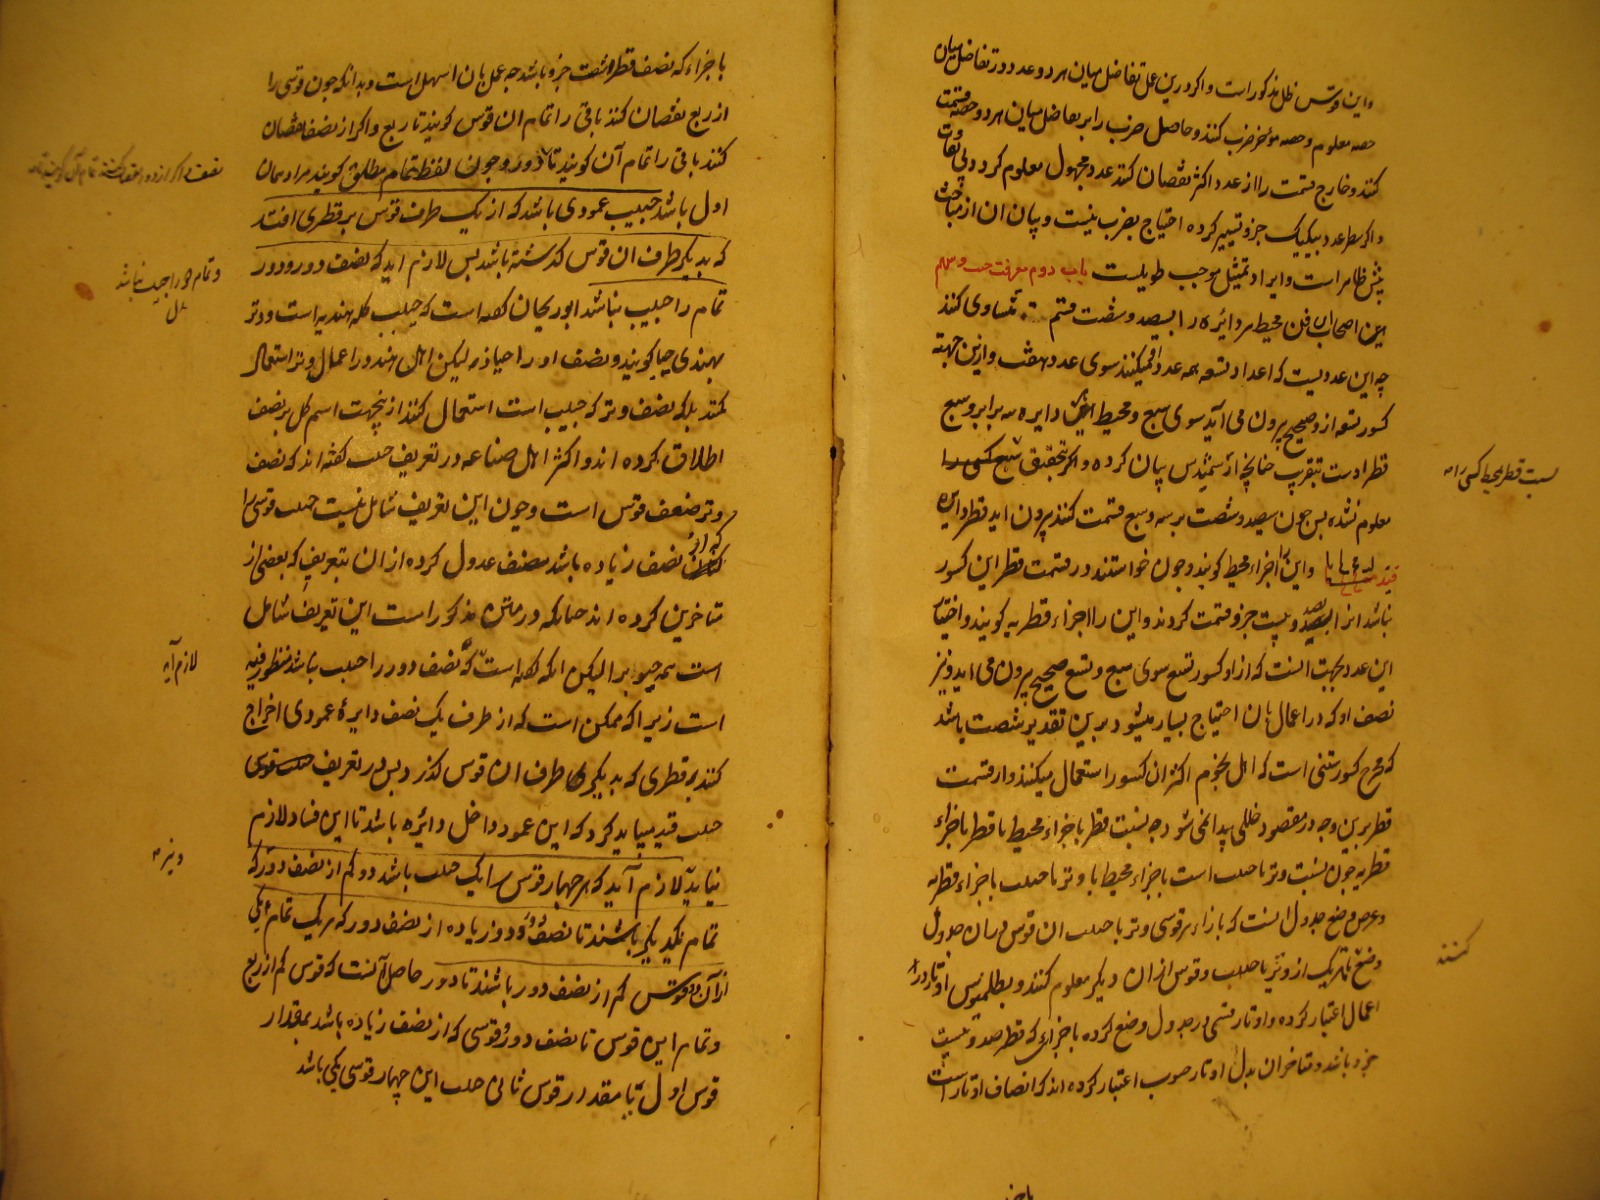 واین قوس ظل مذکور است واکر درین عمل تفاضل میان هر دو عدد در تفاضل میان
حصه معلوم وحصه مؤخر ضرب کنند وحاصل ضرب را بر تفاضل میان هر دو حصه قسمت
کنند وخارج قسمت را از عدد اکثر نقصان کنند عدد مجهول معلوم کردد
واکر سطر عدد بیکیک جزو تسییر کرده احتیاج بضرب نیست وبیان ان از مباحث
پیش ظاهر است وایراد تمثیل موجب طویلست باب دوم معرفت جیب وسهم
این اصحاب این فن محیط هر دائره را بسیصد وشصت قسم متساوی کنند
چه این عددیست که اعداد تسعه همه عد او میکنند سوی عدد هفت وازین جهته
کسور تسعه از و صحیح بیرون می آید سوی سبع ومحیط دایره سه برابر وسبع
قطر اوست بتقریب چنانچه ارشمیدس بیان کرده واکر بتحقیق هیچ کس را
معلوم نشده بس چون سیصد وشصت بر سه وسبع قسمت کنند بیرون اید قطر دایره
واین اجزاء محیط کویند وچون خواستند در قسمت قطر این کسور
نباشد انرا بصد وبیست جزو قسمت کردند واین را اجزاء قطریه کویند واختیار
این عدد بجهت انست که از او کسور تسع سوی سبع وتسع صحیح بیرون می اید ونیز
نصف او که در اعمال بان احتیاج بسیار میشود برین تقدیر شصت باشد
که مخرج کسور ستنی است که اهل نجوم اکثر ان کسور استعمال میکنند واز قسمت
قطر برین وجه در مقصود خللی پیدا نمی شود چه نسبت قطر باجزاء محیط با قطر باجزاء
قطریه چون نسبت وتر یا جیب است باجزاء محیط با وتر یا جیب باجزاء قطریه
وغرض وضع جدول انست که بازاء هر قوسی وتر یا جیب ان قوس در ان جدول
وضع تا هر یک از وتر یا جیب وقوس از ان دیکر معلوم کنند وبطلمیوس اوتار در
اعمال اعتبار کرده واوتار قسی در جدول وضع کرده باجزائی که قطر صد وبیست
جزو باشد ومتاخران بدل اوتار جیوب اعتبار کرده اند که انصاف اوتار است
نسبت قطر محیط کسی را
کنند
باجزاء که نصف قطر شصت جزو باشد چه عمل بان اسهل است وبدانکه چون قوسی را
از ربع نقصان کنند باقی را تمام ان قوس کویند تا ربع واکر از نصف نقصان
کنند باقی را تمام آن کویند تا دور وچون لفظ تمام مطلق کویند مراد همان
اول باشد جیب عمودی باشد که از یک طرف قوس بر قطری افتد
که بدیکر طرف ان قوس کذشته باشد بس لازم اید که نصف دور ودور
تمام را جیب نباشد ابوریحان کفته است که جیب کلمه هندیه است ووتر
بهندی جیبا کویند ونصف او را جیاذر لیکن اهل هند در اعمال وتر استعمال
نکنند بلکه نصف وتر که جیب است استعمال کنند از ینجهت اسم کل بر نصف
اطلاق کرده اند واکثر اهل صناعه در تعریف جیب کفته اند که نصف
وتر ضعف قوس است وچون این تعریف شامل نیست جیب قوسی را
که از نصف زیاده باشد مصنف عدول کرده از ان بتعریف که بعضی از
متاخرین کرده اند چنانکه در متن مذکور است این تعریف شامل
است همه جیوب را لیکن انکه کفته است که نصف دور را جیب نباشد منظور فیه
است زیرا که ممکن است که از طرف یک نصف دایرۀ عمودی اخراج
کنند بر قطری که بدیکر طرف ان قوس کذرد بس در تعریف جیب قوسی
جیب قید میباید کرد که این عمود داخل دائره باشد تا این فساد لازم
نیاید لازم آید که هر چهار قوس را یک جیب باشد دو کم از نصف دور که
تمام یکدیکر باشند تا نصف دور ودو زیاده از نصف دور که هر یک تمام یکی
از آن دو قوس کم از نصف دور باشند تا دور حاصل آنست که قوس کم از ربع
وتمام این قوس تا نصف دور وقوسی که از نصف زیاده باشد بمقدار
قوس اول تا بمقدار قوس ثانی جیب این چهار قوس یکی باشد
وتمام دور را جیب نباشد
لازم آید
ونیز